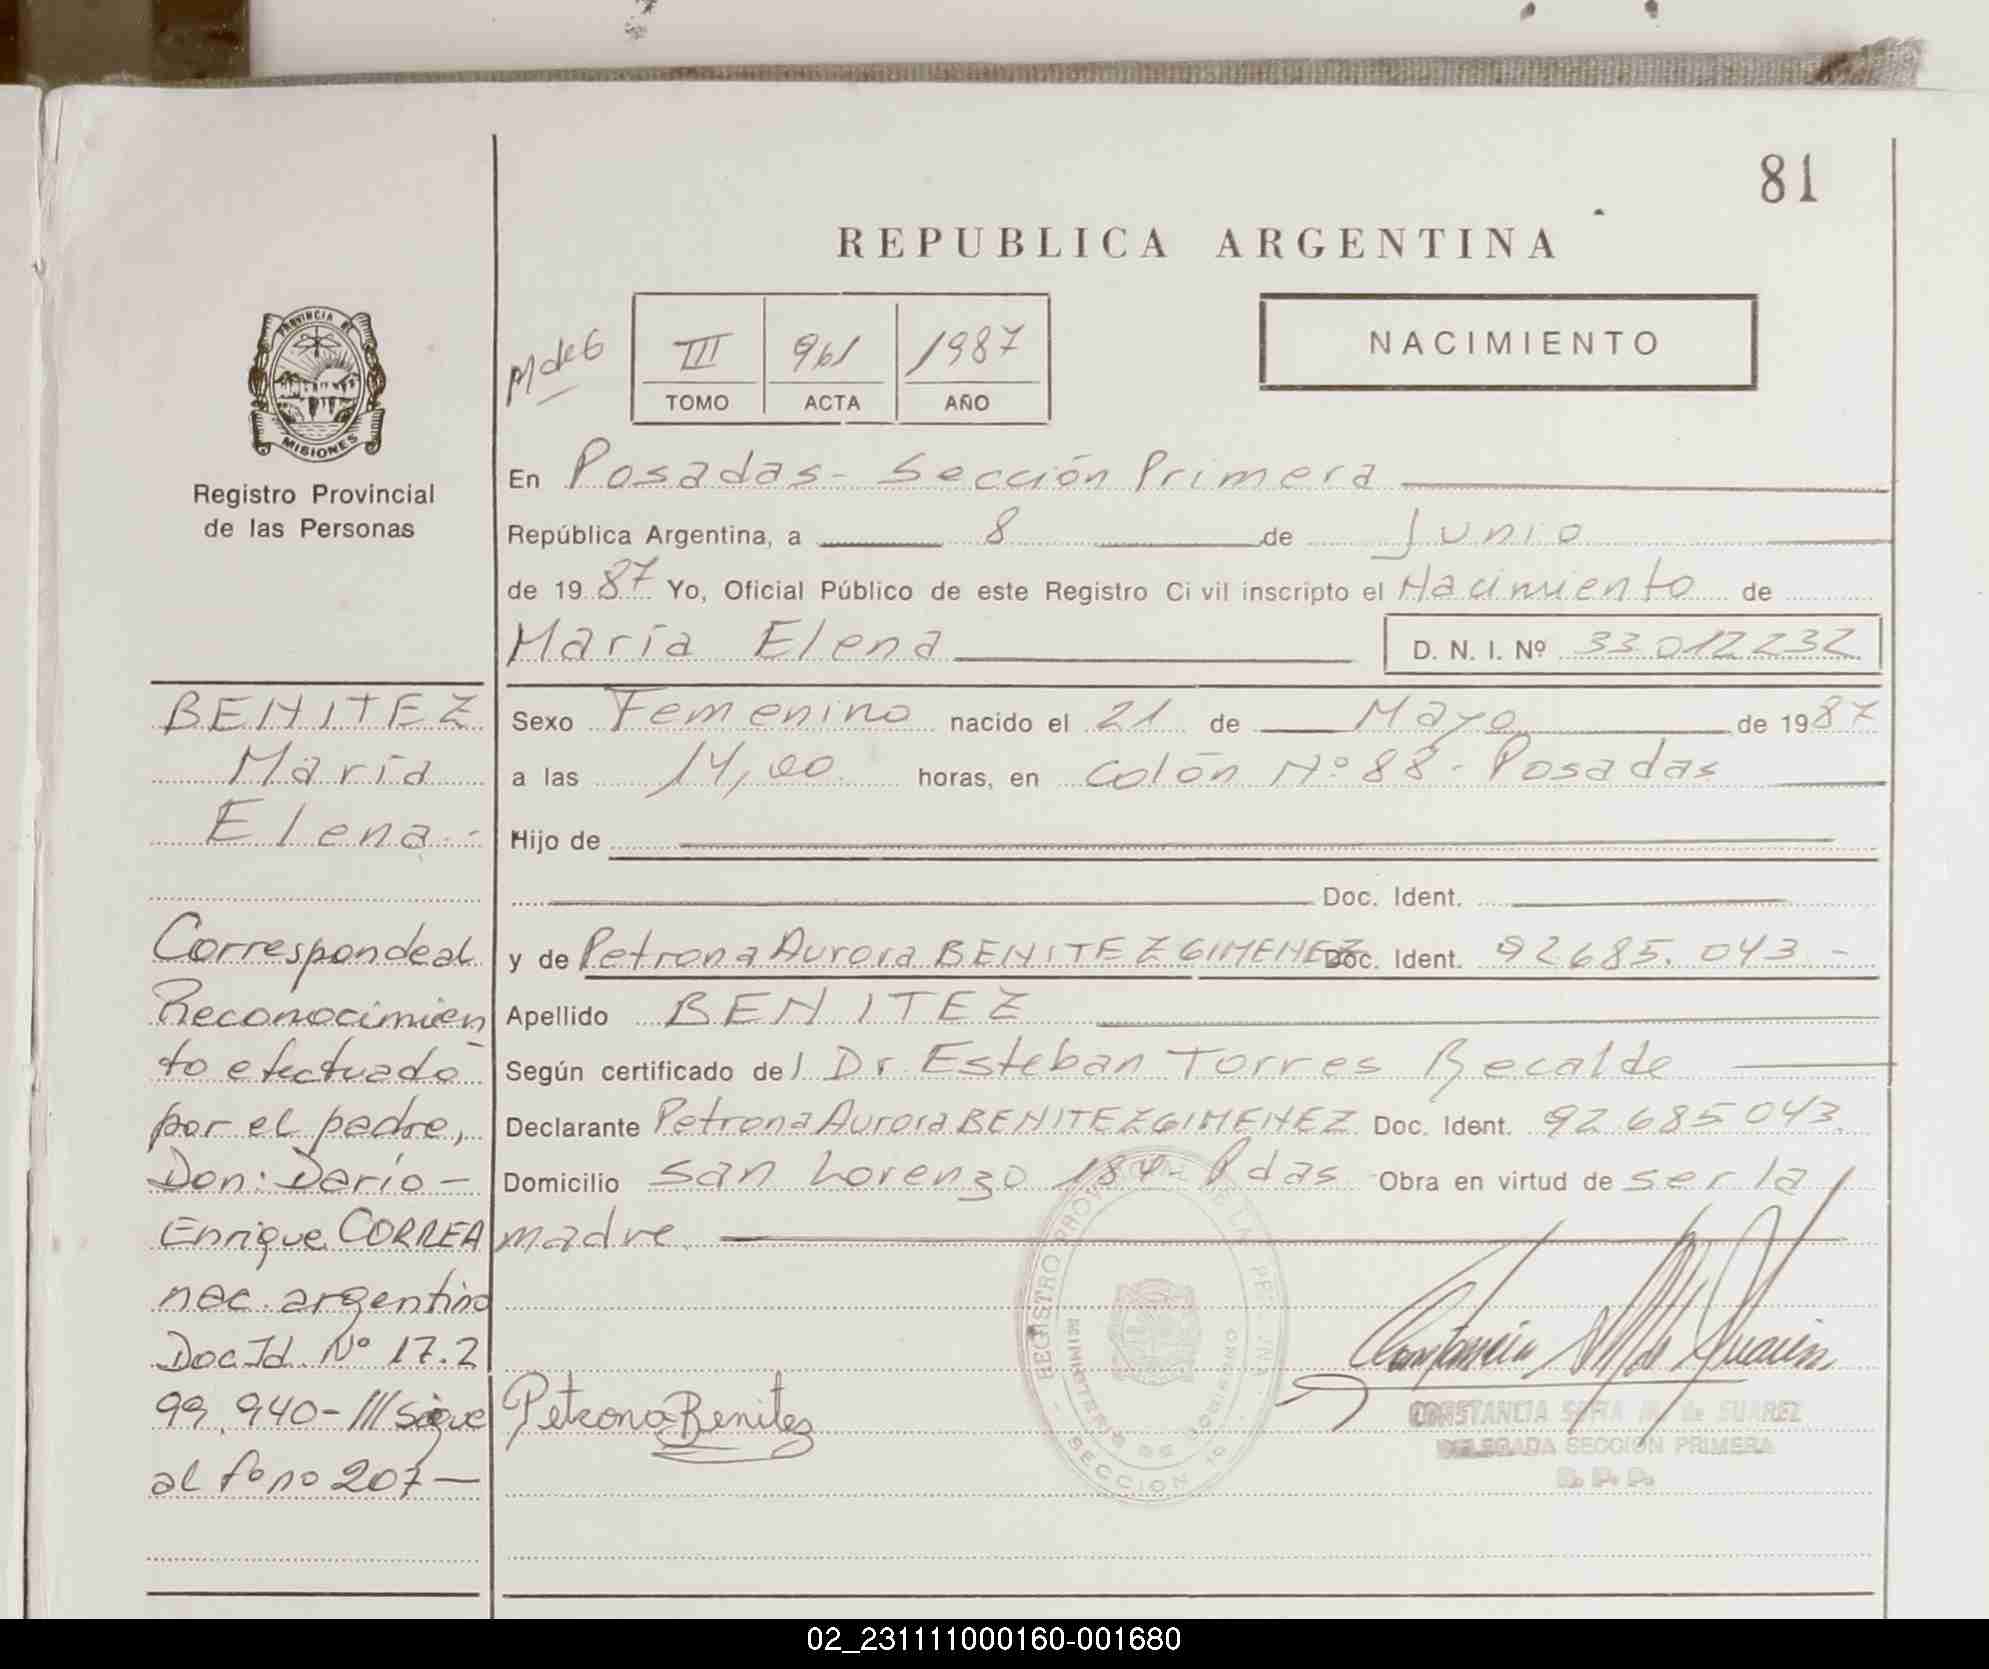 81
REPUBLICA ARGENTINA
M de G
III 961 1987
TOMO ACTA AÑO
NACIMIENTO
PROVINCIA DE
MISIONES
Registro Provincial
de las Personas
En Posadas - Sección Primera
República Argentina, a 8 de Junio
de 1987 Yo, Oficial Público de este Registro Ci vil inscripto el Nacimiento de
María Elena D. N. I. Nº 33012232
Sexo Femenino nacido el 21 de Mayo de 1987
a las 14,00 horas, en Colón Nº 88 - Posadas
Hijo de
Doc. Ident.
y de Petrona Aurora BENITEZ GIMENEZ Doc. Ident. 92685.043 -
Apellido BENITEZ
Según certificado del Dr Esteban Torres Recalde
Declarante Petrona Aurora BENITEZ GIMENEZ Doc. Ident. 92 685 043.
Domicilio San Lorenzo 184 - Pdas Obra en virtud de ser la
madre.
BENITEZ
María
Elena -
Corresponde al
Reconocimien
to efectuado
por el padre,
Don: Darío -
Enrique CORREA
nac. argentino
Doc. Id. Nº 17.2
99.940 - /// sigue
al fono 207 -
Petrona Benitez
REGISTRO PROVINCIAL DE LAS PERSONAS
MINISTERIO DE GOBIERNO
SECCION 1º
CONSTANCIA SOFIA M. de SUAREZ
DELEGADA SECCION PRIMERA
R. P. P.
02_231111000160-001680